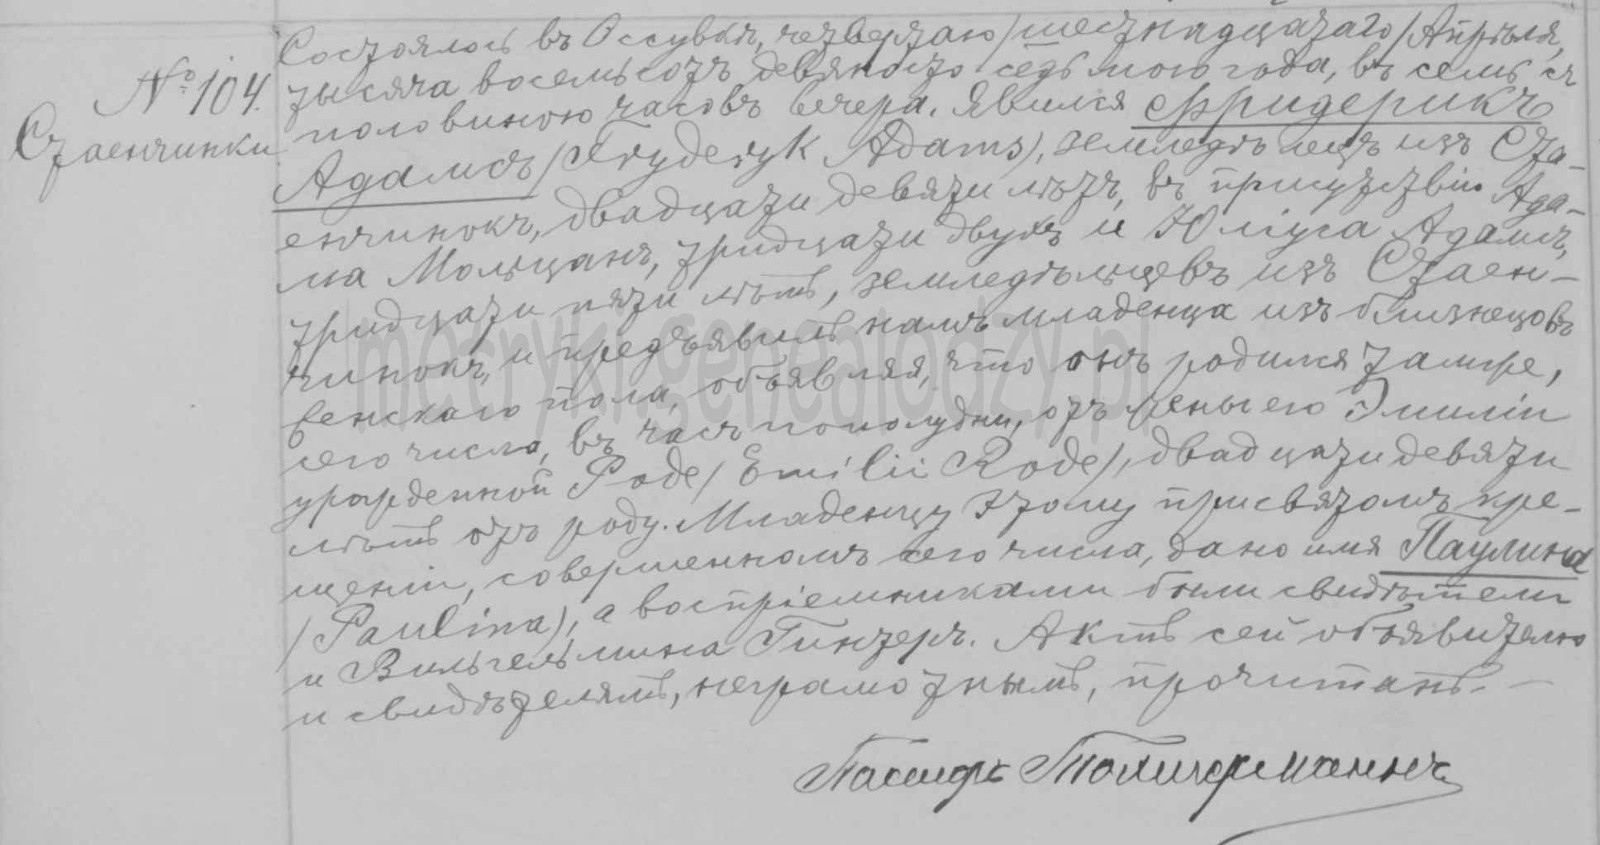 № 104.
Стаенчинки
Состоялось въ Оссувкѣ, четвертаго/шестнадцатаго/Апрѣля,
тысяча восемьсотъ девяносто седьмого года, въ семь съ
половиною часовъ вечера. Явился Фридерикъ
Адамсъ/Fryderyk Adams), земледѣлецъ изъ Ста-
енчинокъ, двадцати девяти лѣтъ, въ присутствіи Ада-
ма Мольцанъ, тридцати двухъ и Юліуса Адамсъ,
тридцати пяти лѣтъ, земледѣльцевъ изъ Стаен-
чинокъ, и предъявилъ намъ младенца изъ близнецовъ
женскаго пола, объявляя, что онъ родился тамже,
сего числа, въ часъ пополудни, отъ жены его Эмиліи
урожденной Роде/Emilii Rode), двадцати девяти
лѣтъ отъ роду. Младенцу этому при святомъ кре-
щеніи, совершенномъ сего числа, дано имя Паулина
/Paulina), а воспріемниками были свидѣтели
и Вильгельмина Гинтеръ. Актъ сей объявителю
и свидѣтелямъ, неграмотнымъ, прочитанъ. —
Пасторъ
metryki.genealodzy.pl